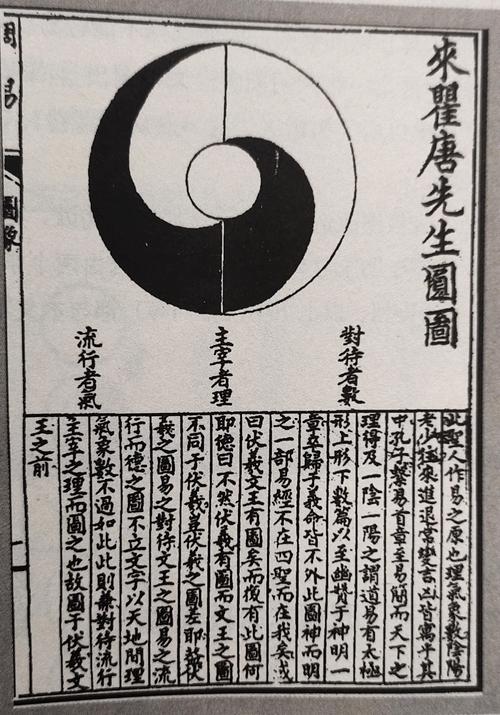 來瞿唐先生圓圖
對待者數
主宰者理
流行者氣
此聖人作易之原也理氣象數陰陽
老少徃來進退常變吉凶皆寓乎其
中孔子繫易首章至易簡而天下之
理得及一陰一陽之謂道易有太極
形上形下數篇以至幽贊于神明一
章卒歸于義命皆不外此圖神而明
之一部易經不在四聖而在我矣或
曰伏羲文王有圖矣而復有此圖何
耶德曰不然伏羲有圖而文王之圖
不同于伏羲豈伏羲之圖差耶蓋伏
羲之圖易之對待文王之圖易之流
行而德之圖不立文字以天地間理
氣象數不過如此此則兼對待流行
主宰之理而圖之也故圖于伏羲文
王之前
周易
圖像